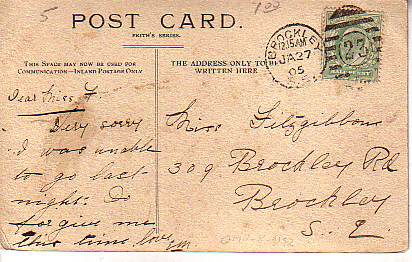 5
1.00
POST CARD.
FRITH'S SERIES.
THIS SPACE MAY NOW BE USED FOR
COMMUNICATION—INLAND POSTAGE ONLY
THE ADDRESS ONLY TO BE
WRITTEN HERE
BROCKLEY
12.15AM
JA27
05
27
Dear Miss F
Very sorry
I was unable
to go last
night. Do
forgive me
this time, love
Miss Fitzgibbons
309 Brockley Rd
Brockley
S. E.